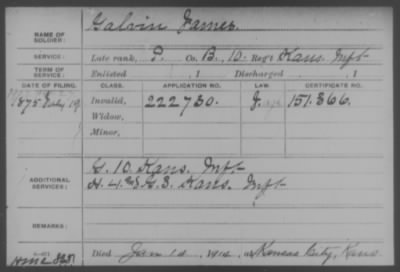 NAME OF SOLDIER: Galvin James
SERVICE: Late rank, P. Co. B, 10. Reg't Kans. Inft
TERM OF SERVICE: Enlisted , 1 Discharged , 1
DATE OF FILING. CLASS. APPLICATION NO. LAW. CERTIFICATE NO.
1875 July 19 Invalid, 222730. 151.366.
Widow,
Minor,
G. 10. Kans. Inft
ADDITIONAL SERVICES: H. 4. & G. 3. Kans. Inft
REMARKS:
Died Jan 14, 1914, at Kansas City, Kans.